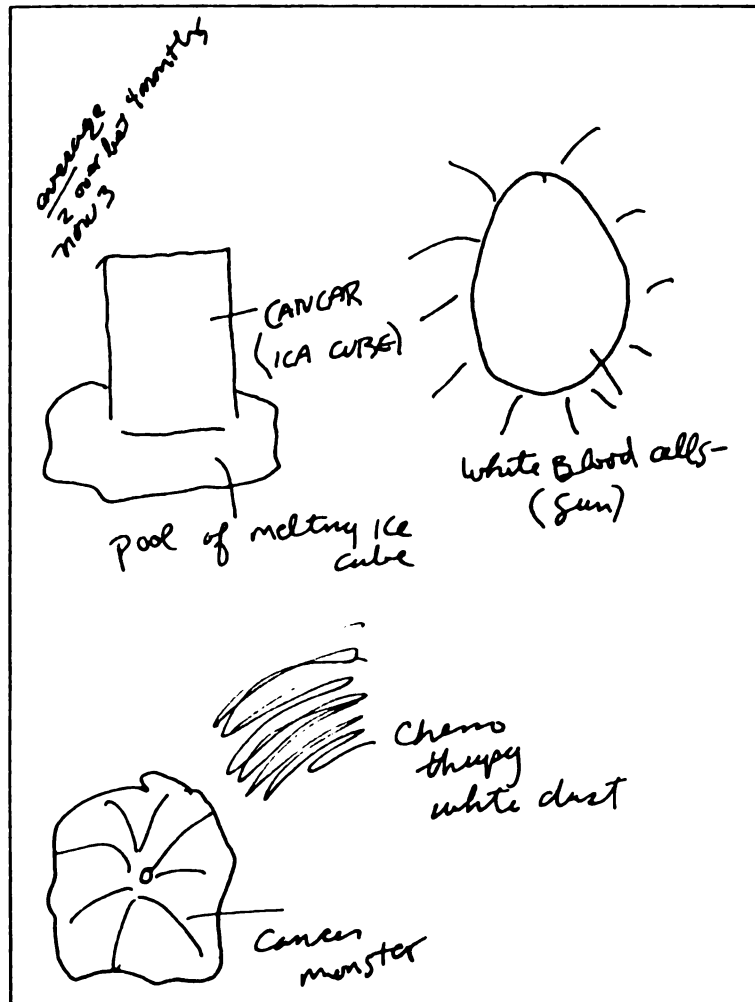 average
2 over last 4 months
now 3
CANCAR
(ICA CUBE)
White Blood cells-
(sun)
pool of melting ice
cube
Chemo
thrupy
white dust
Cancer
monster